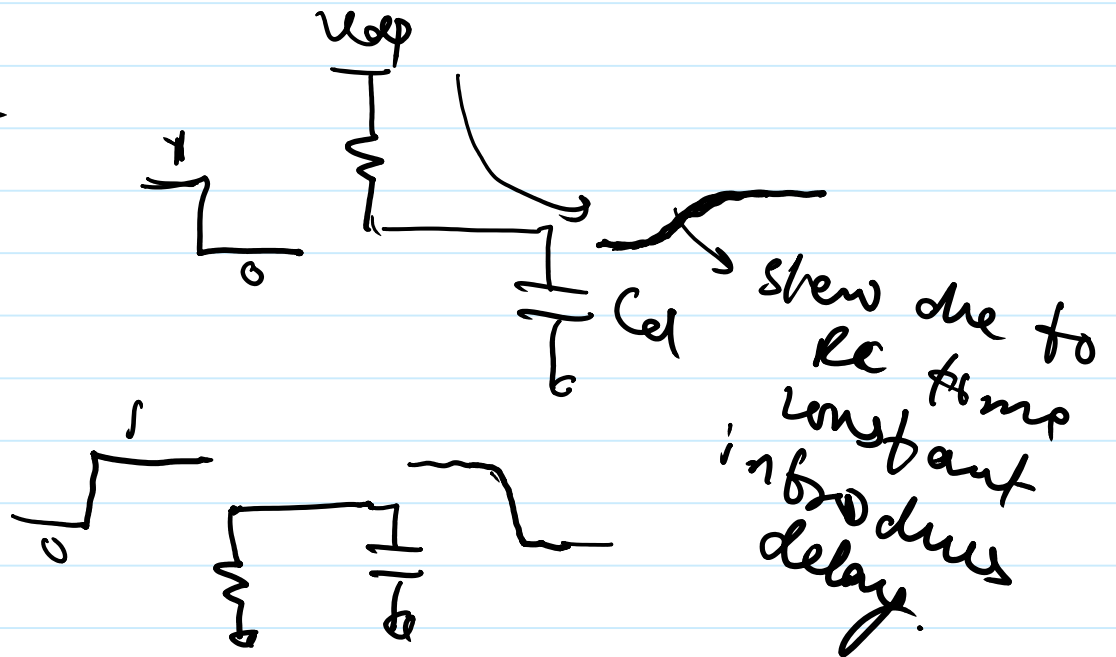 VDD
1
0
Cel
skew due to
RC time
constant
introduces
delay.
1
0